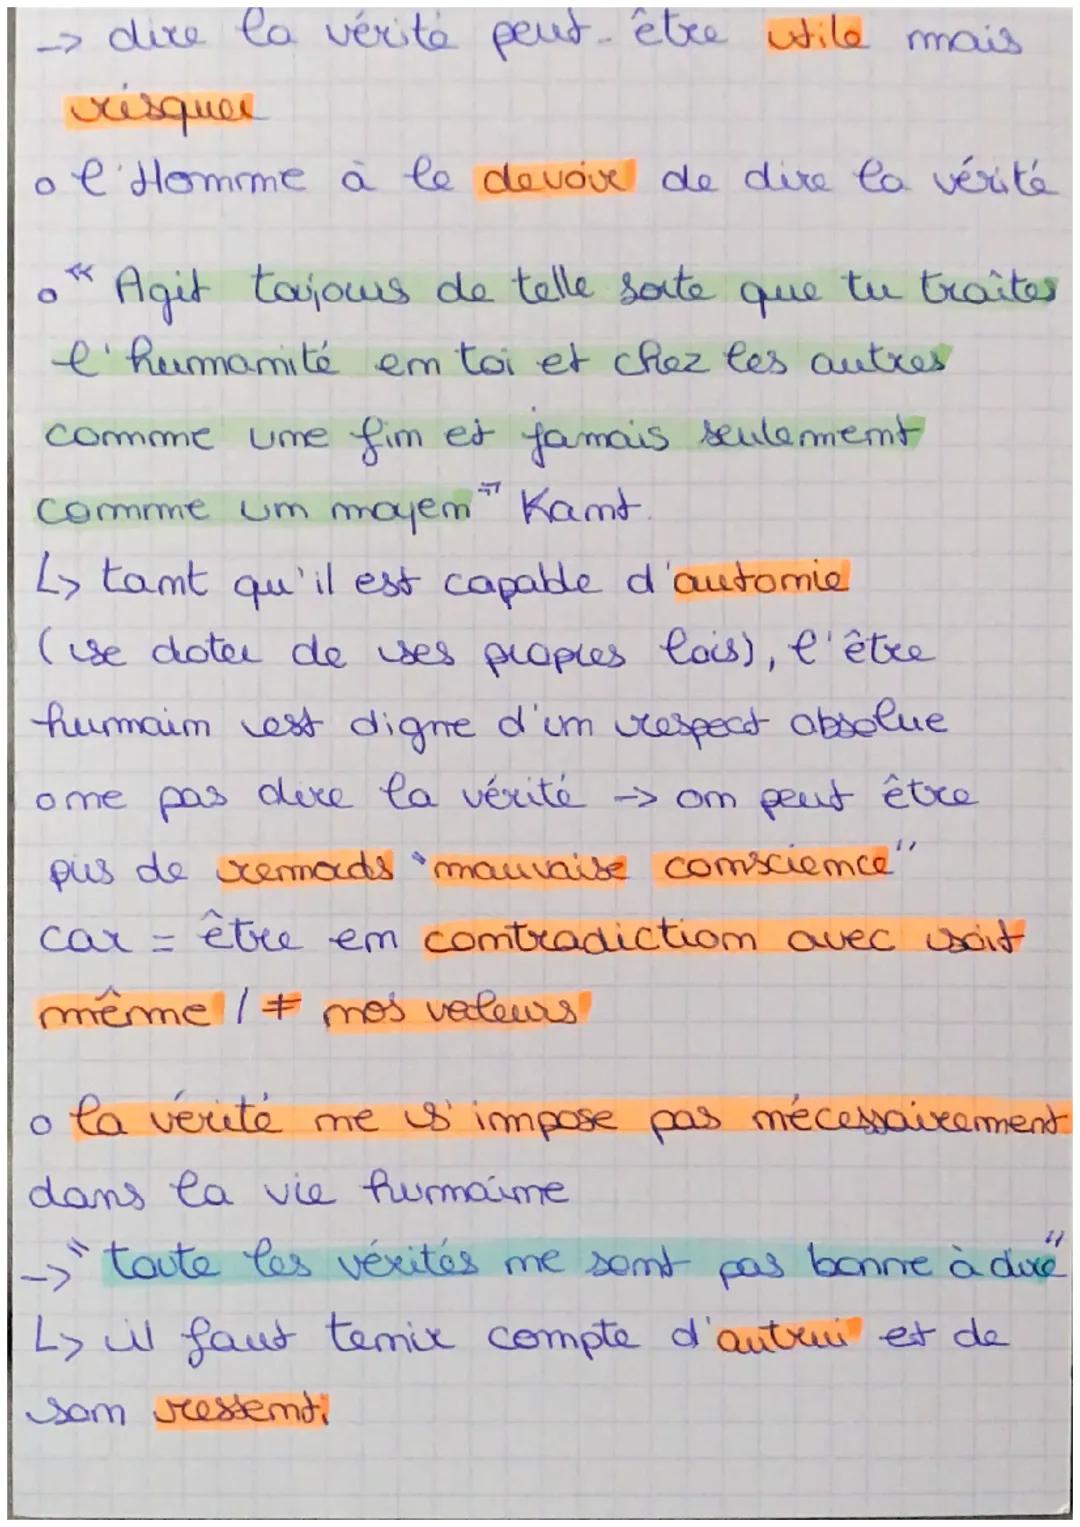 -> dire la vérité peut-être utile mais
risquer
o l'Homme à le devoir de dire la vérité
o "Agit toujours de telle sorte que tu traîtes
l'humanité en toi et chez les autres
comme une fin et jamais seulement
comme un moyen" Kant.
L> tant qu'il est capable d'automie
(se doter de ses propres lois), l'être
humain est digne d'un respect absolue
o ne pas dire la vérité -> on peut être
pris de remords "mauvaise conscience"
car = être en contradiction avec soit
même / ≠ nos valeurs
o la vérité ne s'impose pas nécessairement
dans la vie humaine
-> "toute les vérités ne sont pas bonne à dire"
L> il faut tenir compte d'autrui et de
son ressenti